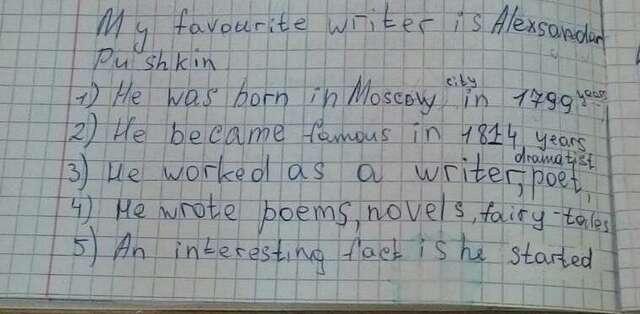 My favourite writer is Alexsandar
Pushkin
1) He was born in Moscow city in 1799 years,
2) He became famous in 1814 years
3) He worked as a writer, dramatist poet,
4) He wrote poems, novels, fairy-tales
5) An interesting fact is he started